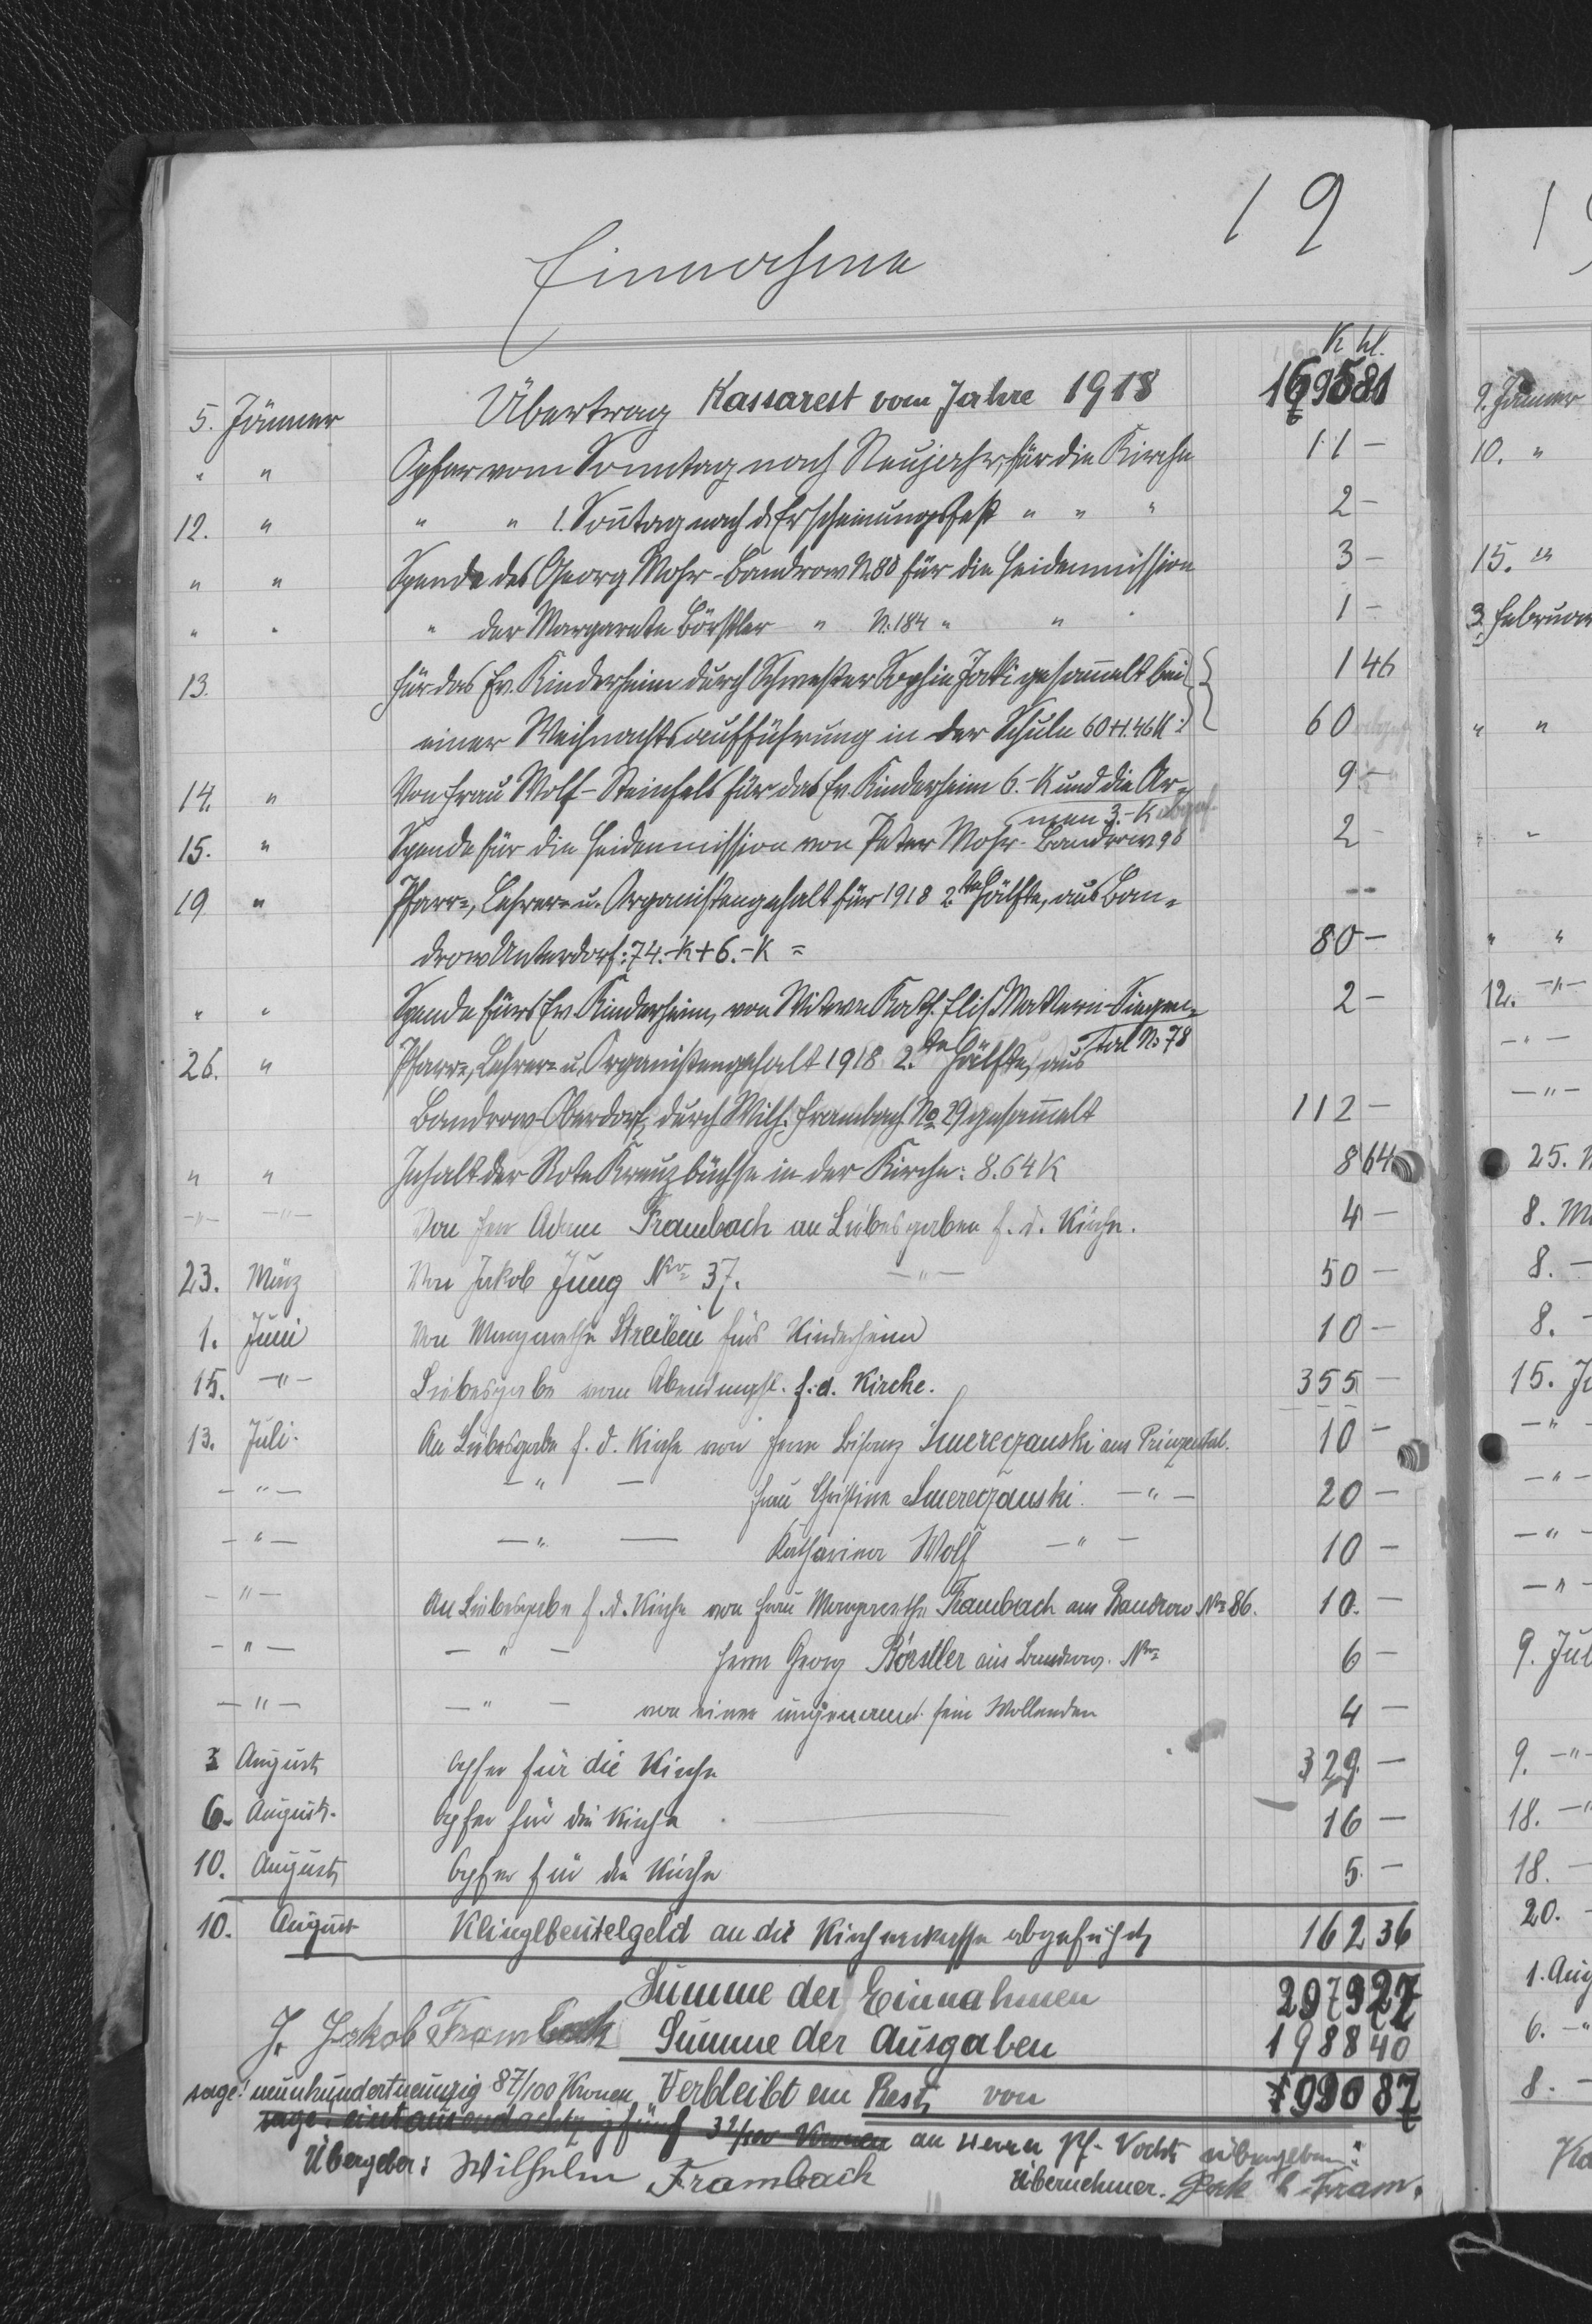 19
Einnahme
K hl.
5. Jänner Übertrag Kassarest vom Jahre 1918 169581
" " Opfer vom Sonntag nach Neujahr, für die Kirche 11 –
12. " " " 1. Sonntag nach d. Erscheinungsfest " " " 2 –
" " Spende des Georg Mohr - Bandrow N. 80 für die Heidenmission 3 –
" " " der Margarete Börstler " N. 184 " " 1 –
13. Für das Ev. Kinderheim durch Schwester Sophie gesammelt bei 1 46
einer Weihnachtsaufführung in der Schule 60+1.46 K 60
14. " Von Frau Wolf - Steinfels für das Ev. Kinderheim 6.- K und die Ar- 9 –
men 3.- K
15. " Spende für die Heidenmission von Peter Mohr - Bandrow 96 2 –
19 " Pfarr-, Lehrer- u. Organistengehalt für 1918 2te Hälfte, aus Ban-
drow Unterdorf: 74.-K + 6.-K = 80 –
" " Spende fürs Ev. Kinderheim, von Witwe Kath. Elis. Mattern - Siegen- 2 –
tal N. 78
26. " Pfarr-, Lehrer- u. Organistengehalt 1918 2te Hälfte, aus
Bandrow-Oberdorf, durch Wilh. Frambach No 29 gesammelt 112 –
" " Inhalt der Rote Kreuzbüchse in der Kirche: 8.64 K 8 64
–"– –"– Von Adam Frambach an Liebesgaben f. d. Kirche. 4 –
23. März Von Jakob Jung Nro 37. –"– 50 –
1. Juni Von Margarethe fürs Kinderheim 10 –
15. –"– Liebesgabe vom Abendmahl. f. d. Kirche. 355 –
13. Juli. An Liebesgabe f. d. Kirche von Herrn Smereczanski aus Prinzental. 10 –
–"– –"– Frau Christine Smereczanski. –"– 20 –
–"– –"– Katharina Wolf –"– 10 –
–"– An Liebesgabe f. d. Kirche von Frau Margarethe Frambach aus Bandrow Nro 86. 10. –
–"– –"– Herrn Georg Börstler aus Bandrow. Nro 6 –
–"– –"– von einem ungenannt sein Wollenden 4 –
3 August Opfer für die Kirche 329. –
6. August. Opfer für die Kirche 16 –
10. August Opfer für die Kirche 5. –
10. August Klinglbeutelgeld an die Kirchenkasse abgeführt 162 36
Summe der Einnahmen 2979 27
J. Jakob Frambach Summe der Ausgaben 1988 40
sage: neunhundertneunzig 87/100 Kronen Verbleibt ein Rest von 990 87
an Herrn Pf. Vocht übergeben:
Übergeber: Wilhelm Frambach Übernehmer. Jak b Fram.
9. Jänner
10. "
15. "
3. Februar
" "
" "
12. –"–
–"–
–"–
25.
8.
8. –
8. –
15.
–"–
–"–
–"–
–"–
9.
9. –"–
18. –"–
18. –
20. –
1. Aug
6. –"
8. –